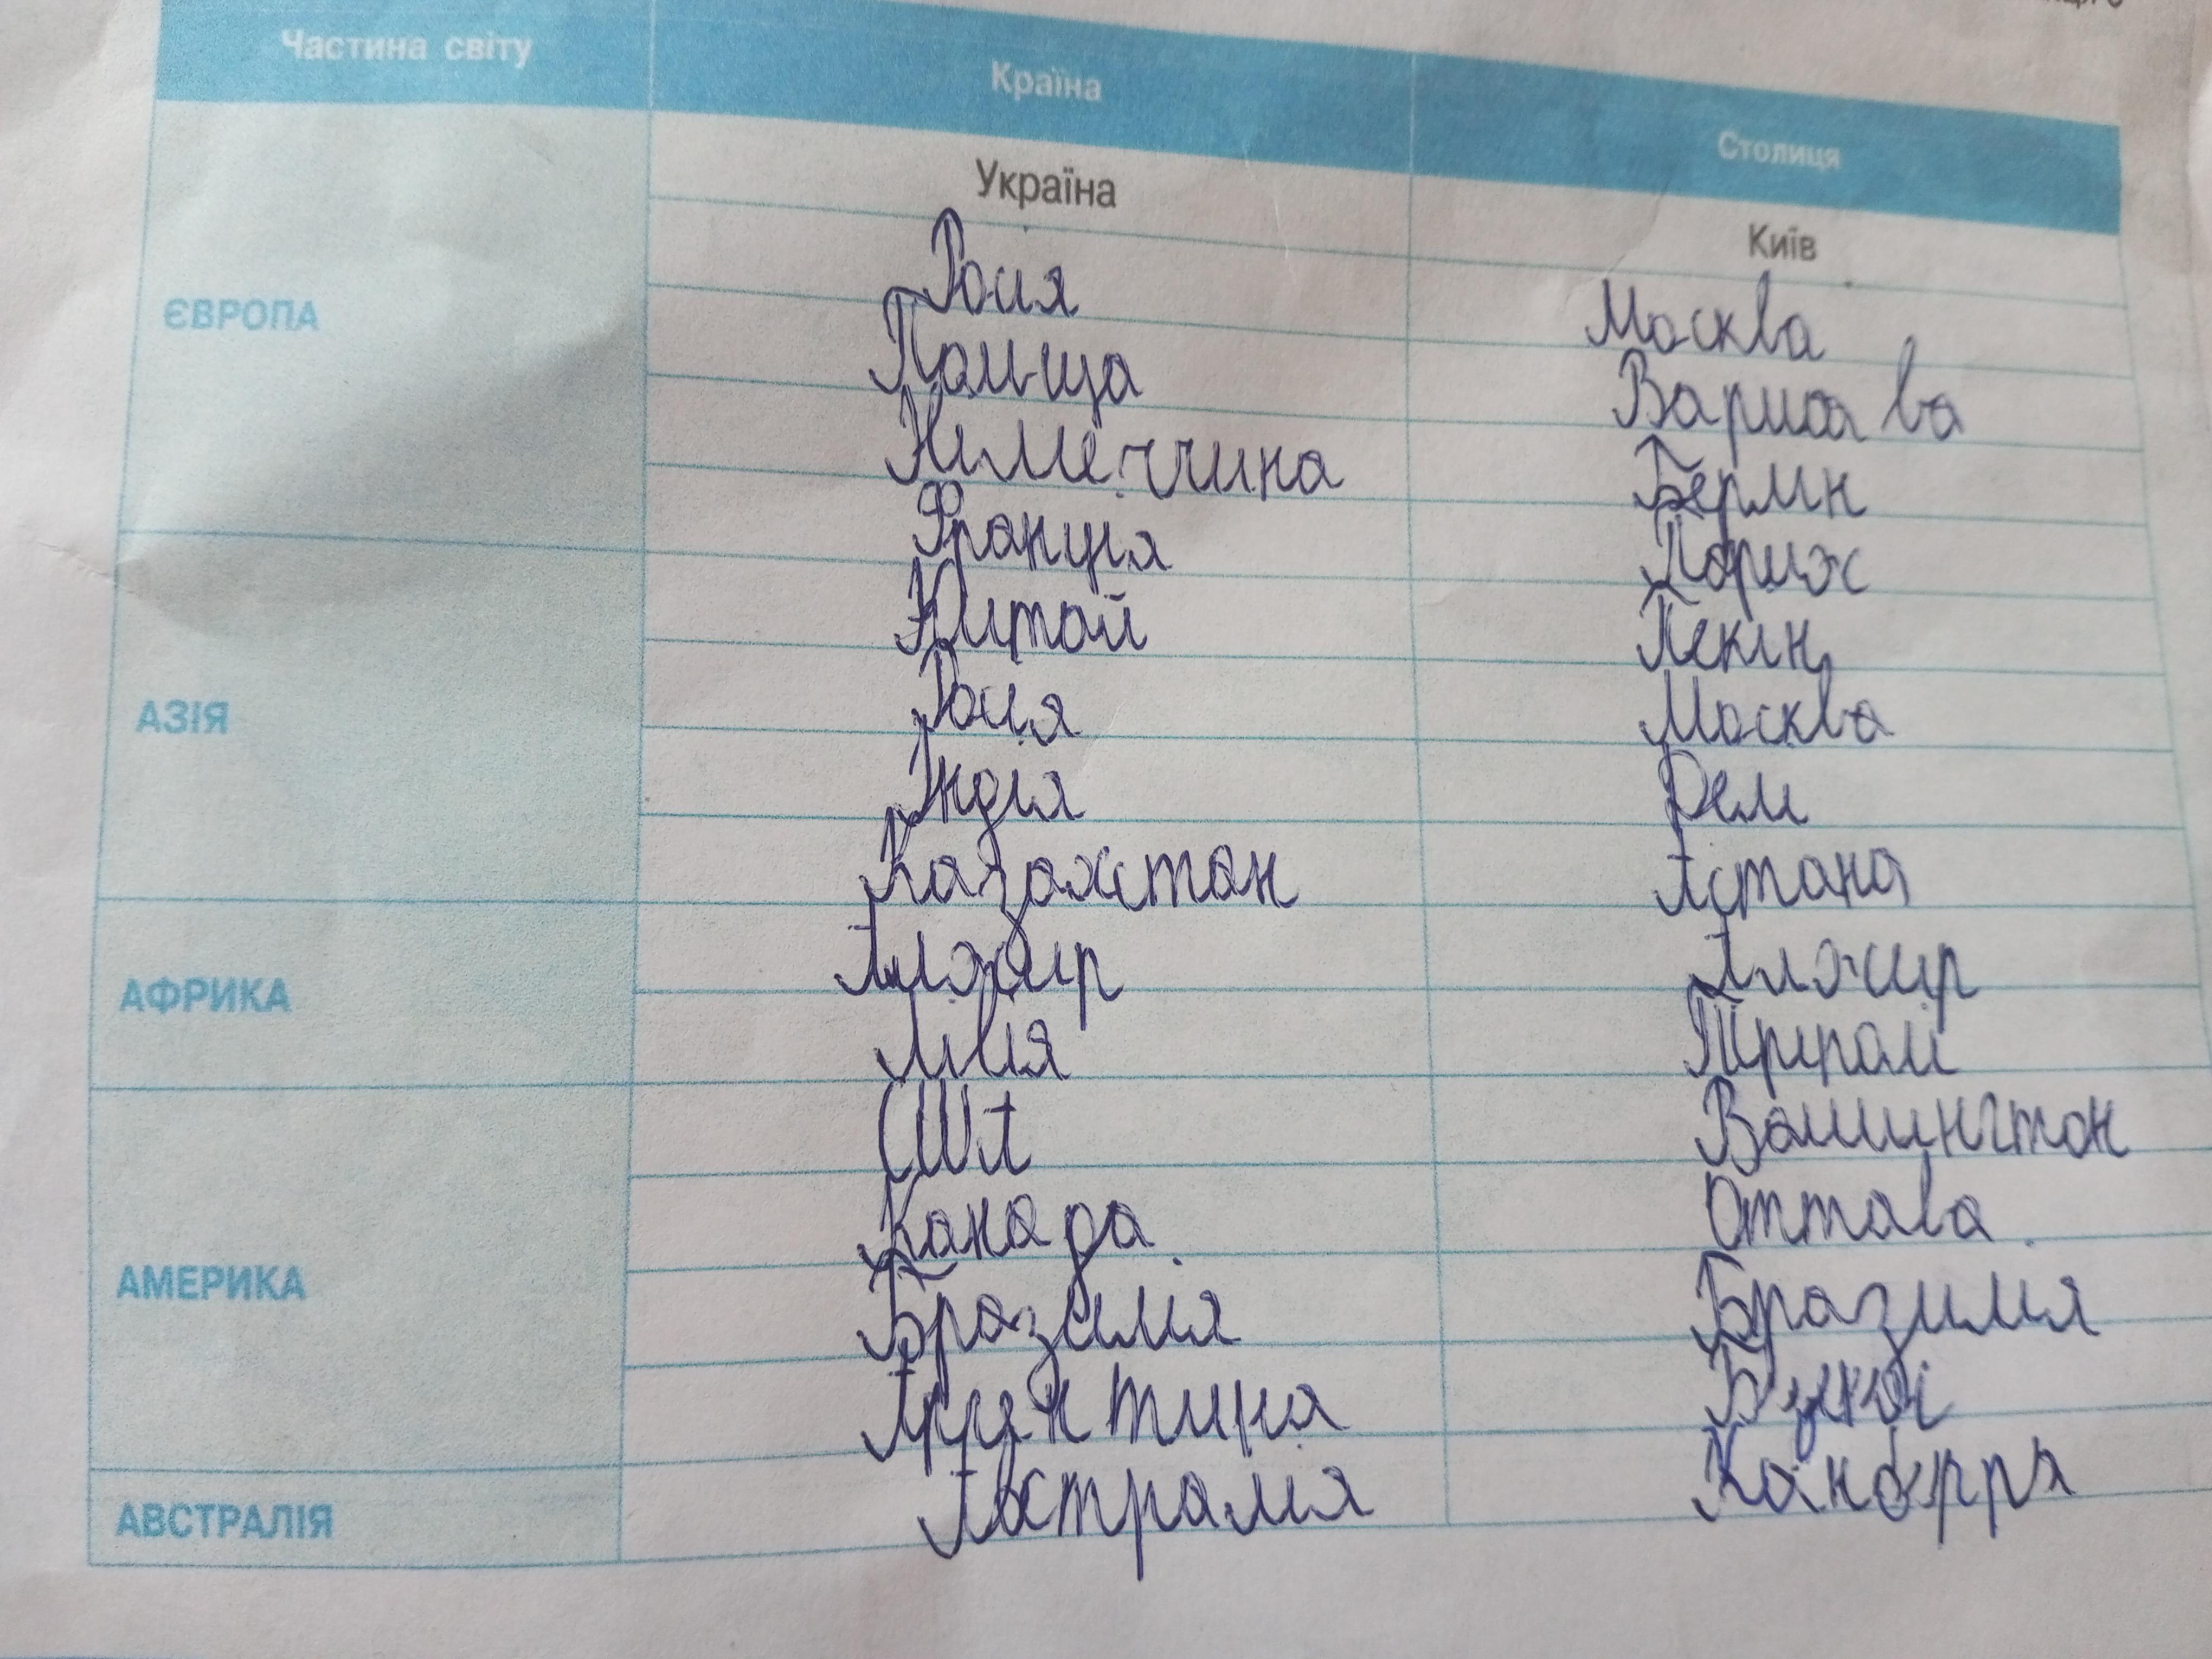 Частина світу Країна Столиця
ЄВРОПА Україна Київ
Росія Москва
Польща Варшава
Німеччина Берлін
Франція Париж
АЗІЯ Китай Пекін
Росія Москва
Індія Делі
Казахстан Астана
АФРИКА Алжир Алжир
Лівія Тріполі
АМЕРИКА США Вашингтон
Канада Оттава
Бразилія Бразилія
Аргентина
АВСТРАЛІЯ Австралія Канберра